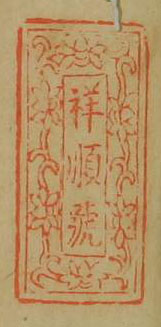 祥順號